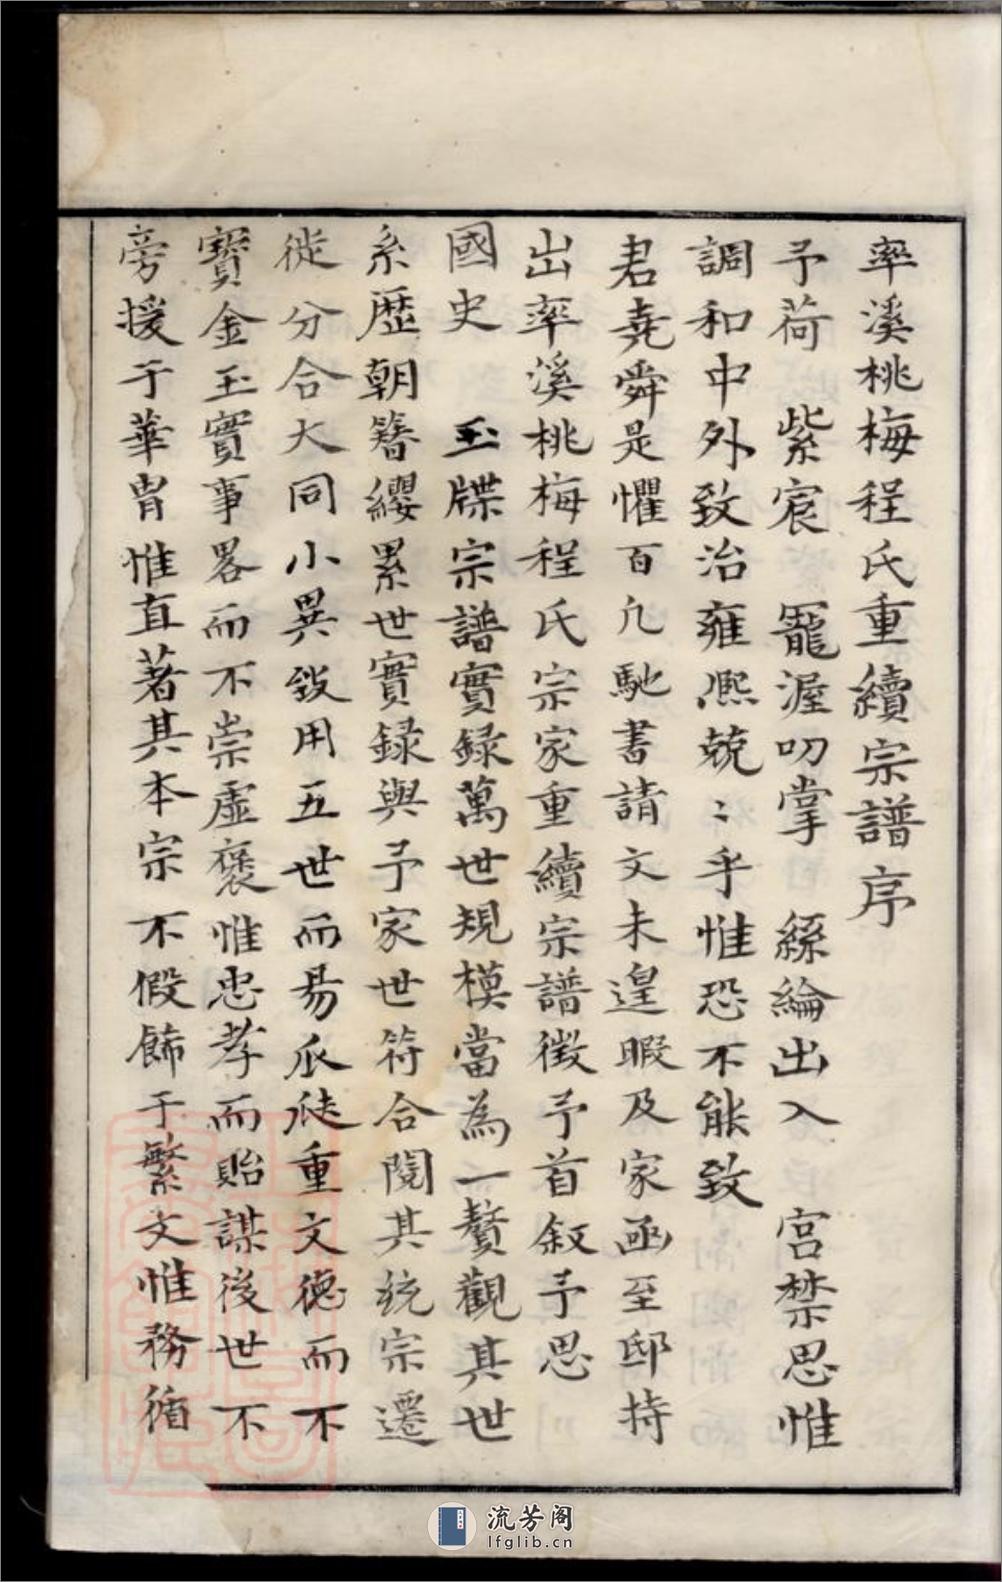 率溪桃梅程氏重續宗譜序
予荷　紫宸　寵渥叨掌　絲綸出入　宮禁思惟
調和中外致治雍熙兢〻乎惟恐不能致
君堯舜是懼百凡馳書請文未遑暇及家函至邸持
出率溪桃梅程氏宗家重續宗譜徵予首叙予思
國史　玉牒宗譜實錄萬世規模當為一贅觀其世
系歷朝簪纓累世實錄與予家世符合閱其統宗遷
徙分合大同小異敘用五世而易派徙重文德而不
寶金玉實事畧而不崇虛褒惟忠孝而貽謀後世不
旁援于華胄惟直著其本宗不假飾于繁文惟務循
流芳阁
lfglib.cn